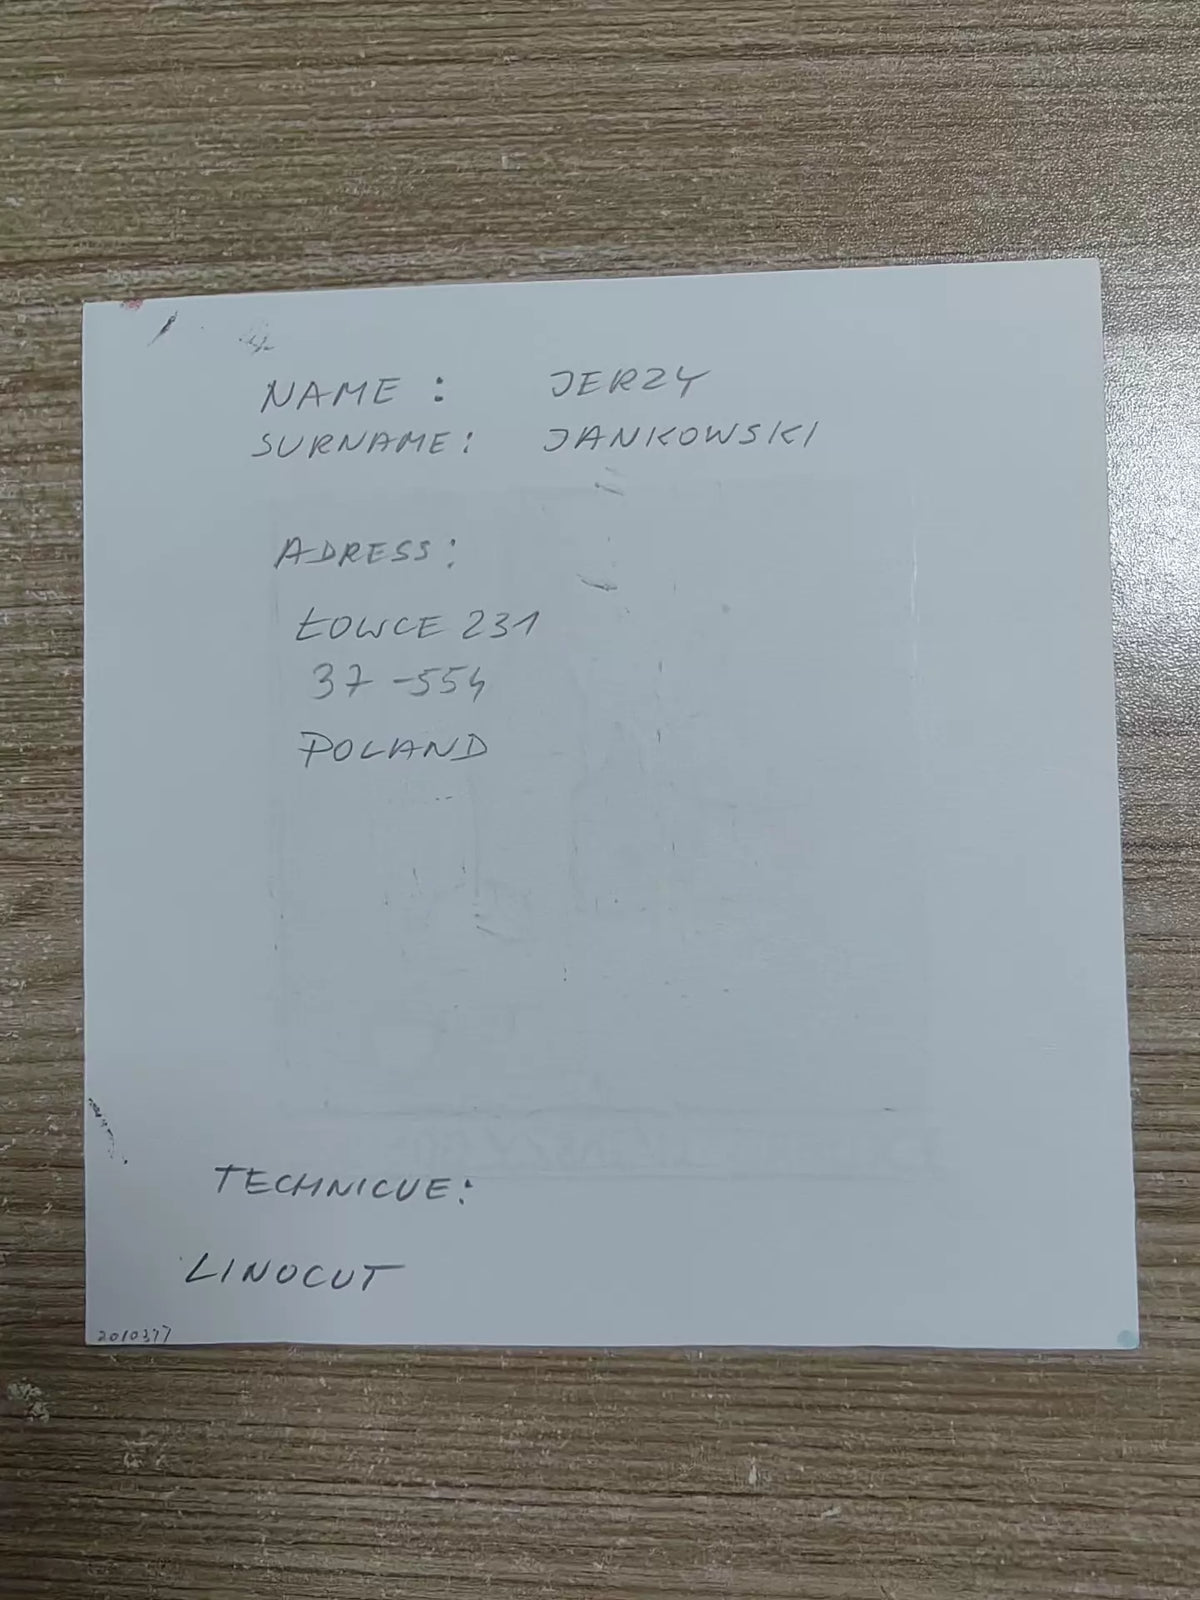 NAME : JERZY
SURNAME: JANKOWSKI
ADRESS:
ŁOWCE 231
37-554
POLAND
TECHNICUE:
LINOCUT
2010377